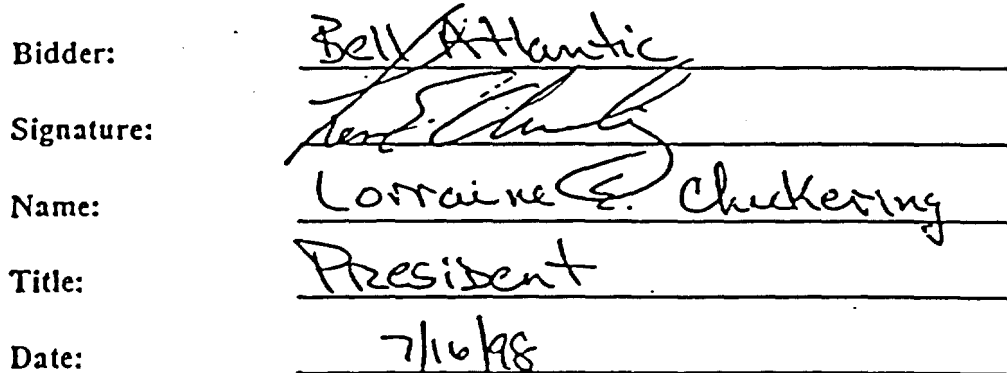 Bidder: Bell Atlantic
Signature:
Name: Lorraine E. Chickering
Title: President
Date: 7/16/98